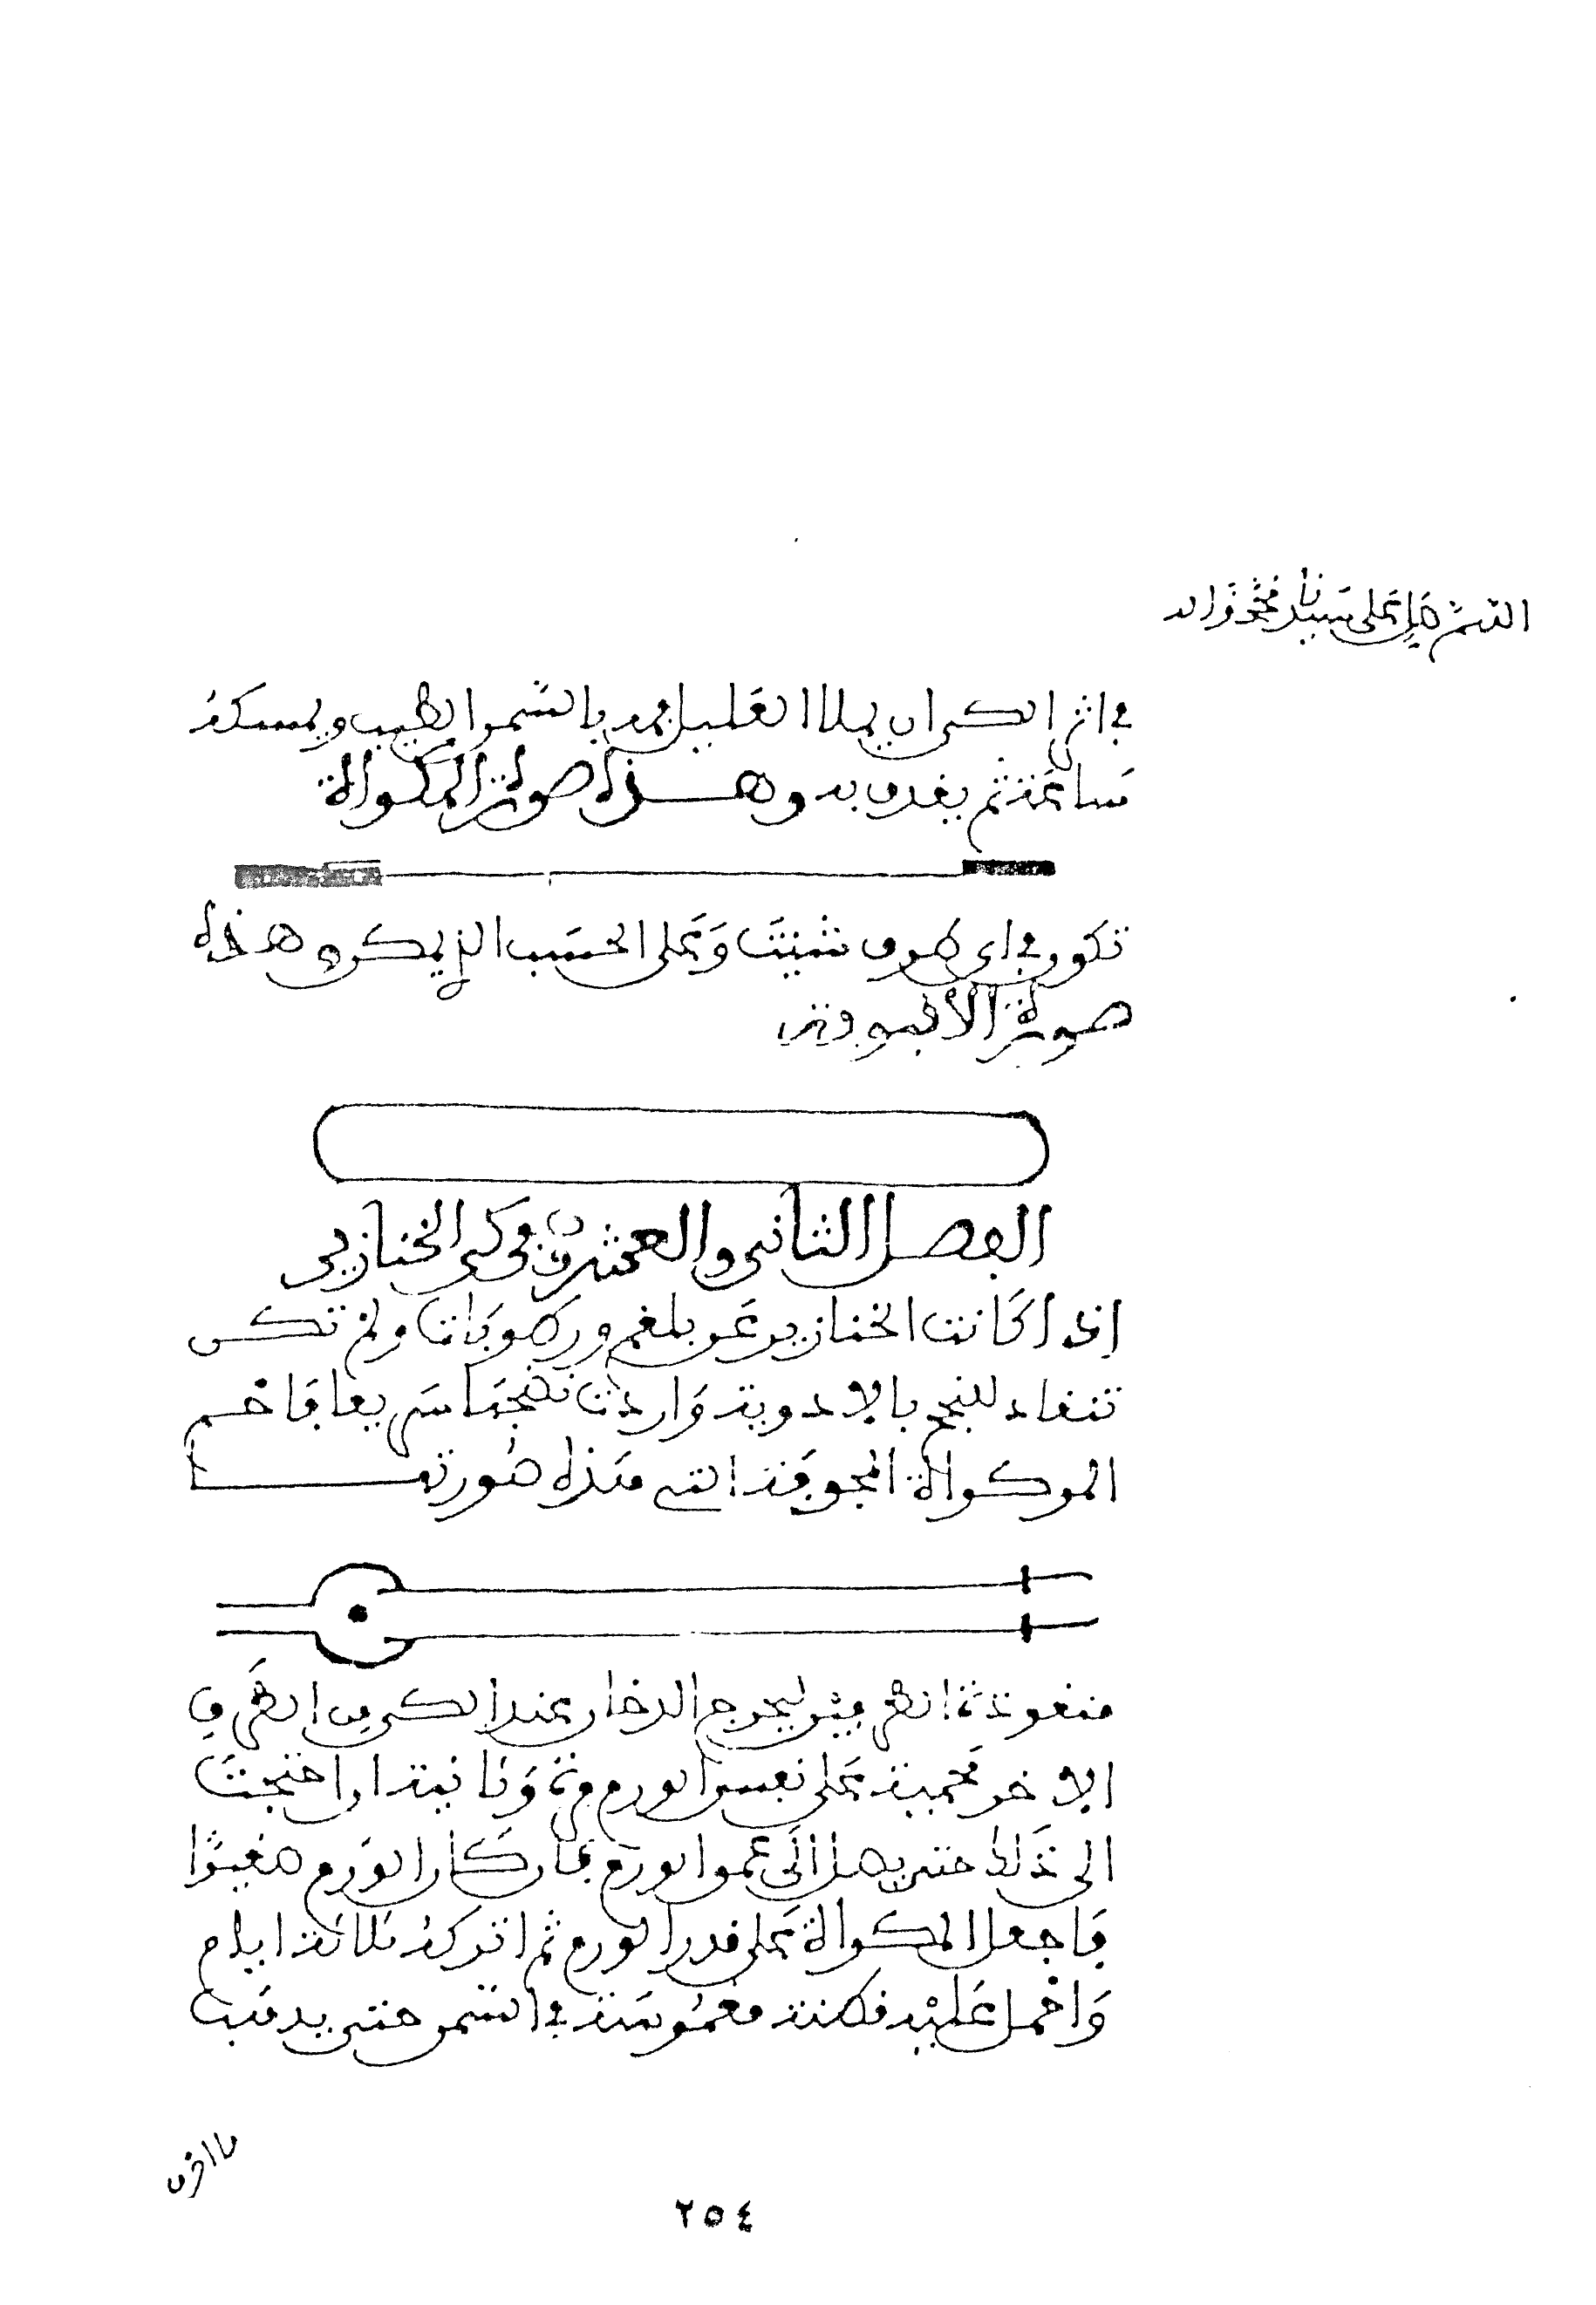 اللهم صل على سيدنا محمد واله
في اثر الكي ان يملا العليل فمه بالسمن الطيب ويمسكه
ساعة ثم يقذف به وهذه صورة المكواة
تكون في اي طرف شئت وعلى الحسب الذي يمكن وهذه
صورة الأنبوبة
الفصل الثاني والعشرون في كي الخنازير
اذا كانت الخنازير عن بلغم ورطوبات ولم تكن
تنقاد للنضج بالادوية واردت نضجها سريعا فاحم
الموكواة المجوفة التي هذه صورتها
منفوذة الطرفين ليخرج الدخان عند الكي من الطرف
الاخر محمية على نفس الورم مرة وثانية ان احتجت
الى ذلك حتى يصل الى عمق الورم فان كان الورم صغيرا
فاجعل المكواة على قدر الورم ثم اتركه ثلاثة ايام
واحمل عليه قطنة مغموسة في السمن حتى يذهب
ما احرق
٢٥٤